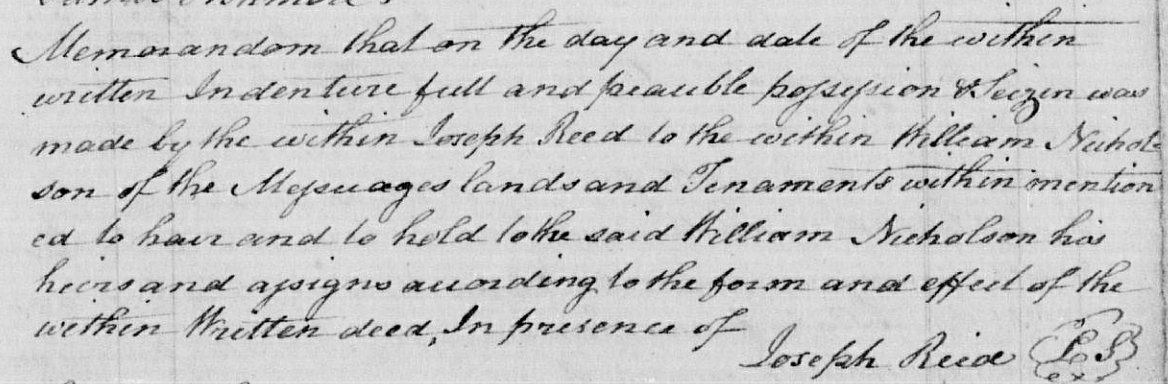 Memorandom that on the day and date of the within
written Indenture full and peacible possession & Seizen was
made by the within Joseph Reed to the within William Nichol-
son of the Messuages lands and Tenaments within mention
ed to have and to hold to the said William Nicholson his
heirs and assigns according to the form and effect of the
within Written deed, In presence of
Joseph Reed L S